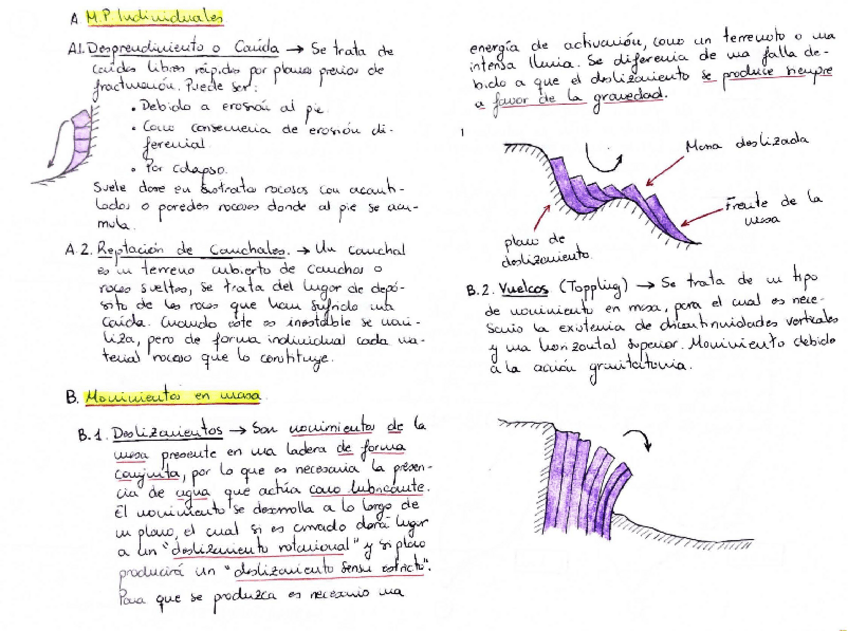 A. M.P. Individuales
A.1. Desprendimiento o Caída → Se trata de
caídas libres rápidas por planos previos de
fracturación. Puede ser:
• Debido a erosión al pie.
• Como consecuencia de erosión di-
ferencial.
• Por colapso.
Suele darse en sustratos rocosos con acanti-
lados o paredes rocosas donde al pie se acu-
mula.
A.2. Reptación de Canchales. → Un canchal
es un terreno cubierto de canchos o
rocas sueltas, se trata del lugar de depó-
sito de las rocas que han sufrido una
caída. Cuando este es inestable se movi-
liza, pero de forma individual cada ma-
terial rocoso que lo constituye.
B. Movimientos en masa
B.1. Deslizamientos → Son movimientos de la
masa presente en una ladera de forma
conjunta, por lo que es necesaria la presen-
cia de agua que actúa como lubricante.
El movimiento se desarrolla a lo largo de
un plano, el cual si es curvado dará lugar
a un "deslizamiento rotacional" y si plano
producirá un "deslizamiento sensu estricto".
Para que se produzca es necesario una
energía de activación, como un terremoto o una
intensa lluvia. Se diferencia de una falla de-
bido a que el deslizamiento se produce siempre
a favor de la gravedad.
1
Masa deslizada
Frente de la
masa
plano de
deslizamiento
B.2. Vuelcos (Toppling) → Se trata de un tipo
de movimiento en masa, para el cual es nece-
sario la existencia de discontinuidades verticales
y una horizontal superior. Movimiento debido
a la acción gravitatoria.